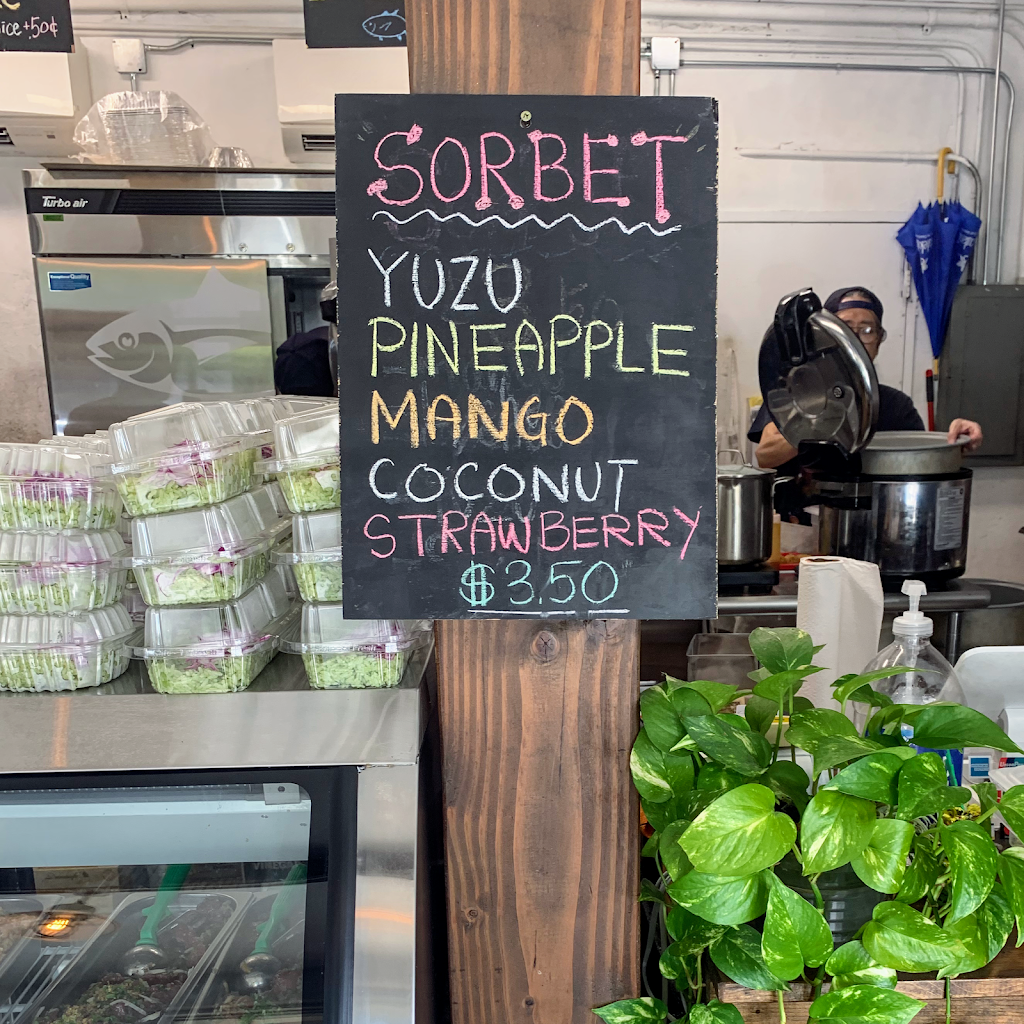 ice +.50¢
Turbo air
SORBET
YUZU
PINEAPPLE
MANGO
COCONUT
STRAWBERRY
$3.50